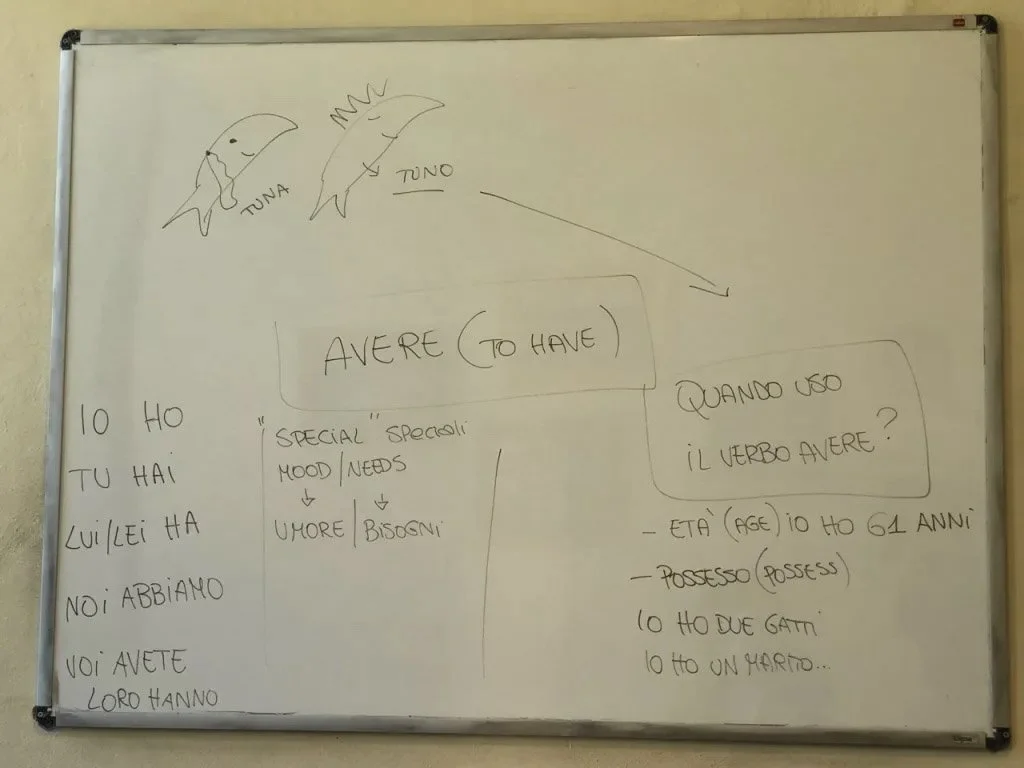 TUNA
TUNO
AVERE (TO HAVE)
IO HO
TU HAI
LUI/LEI HA
NOI ABBIAMO
VOI AVETE
LORO HANNO
"SPECIAL" SPECIALI
MOOD/NEEDS
UMORE/BISOGNI
QUANDO USO
IL VERBO AVERE?
- ETÀ (AGE) IO HO 61 ANNI
- POSSESSO (POSSESS)
IO HO DUE GATTI
IO HO UN MARITO...